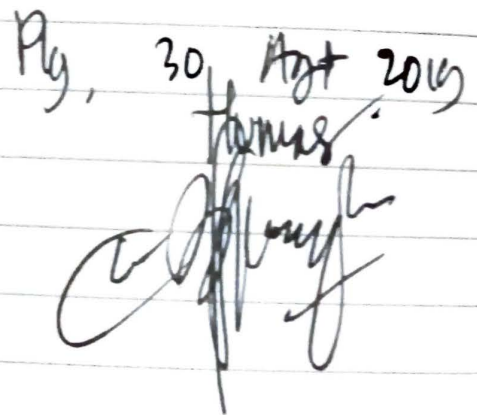 Plg, 30 Agt 2019
Thomas